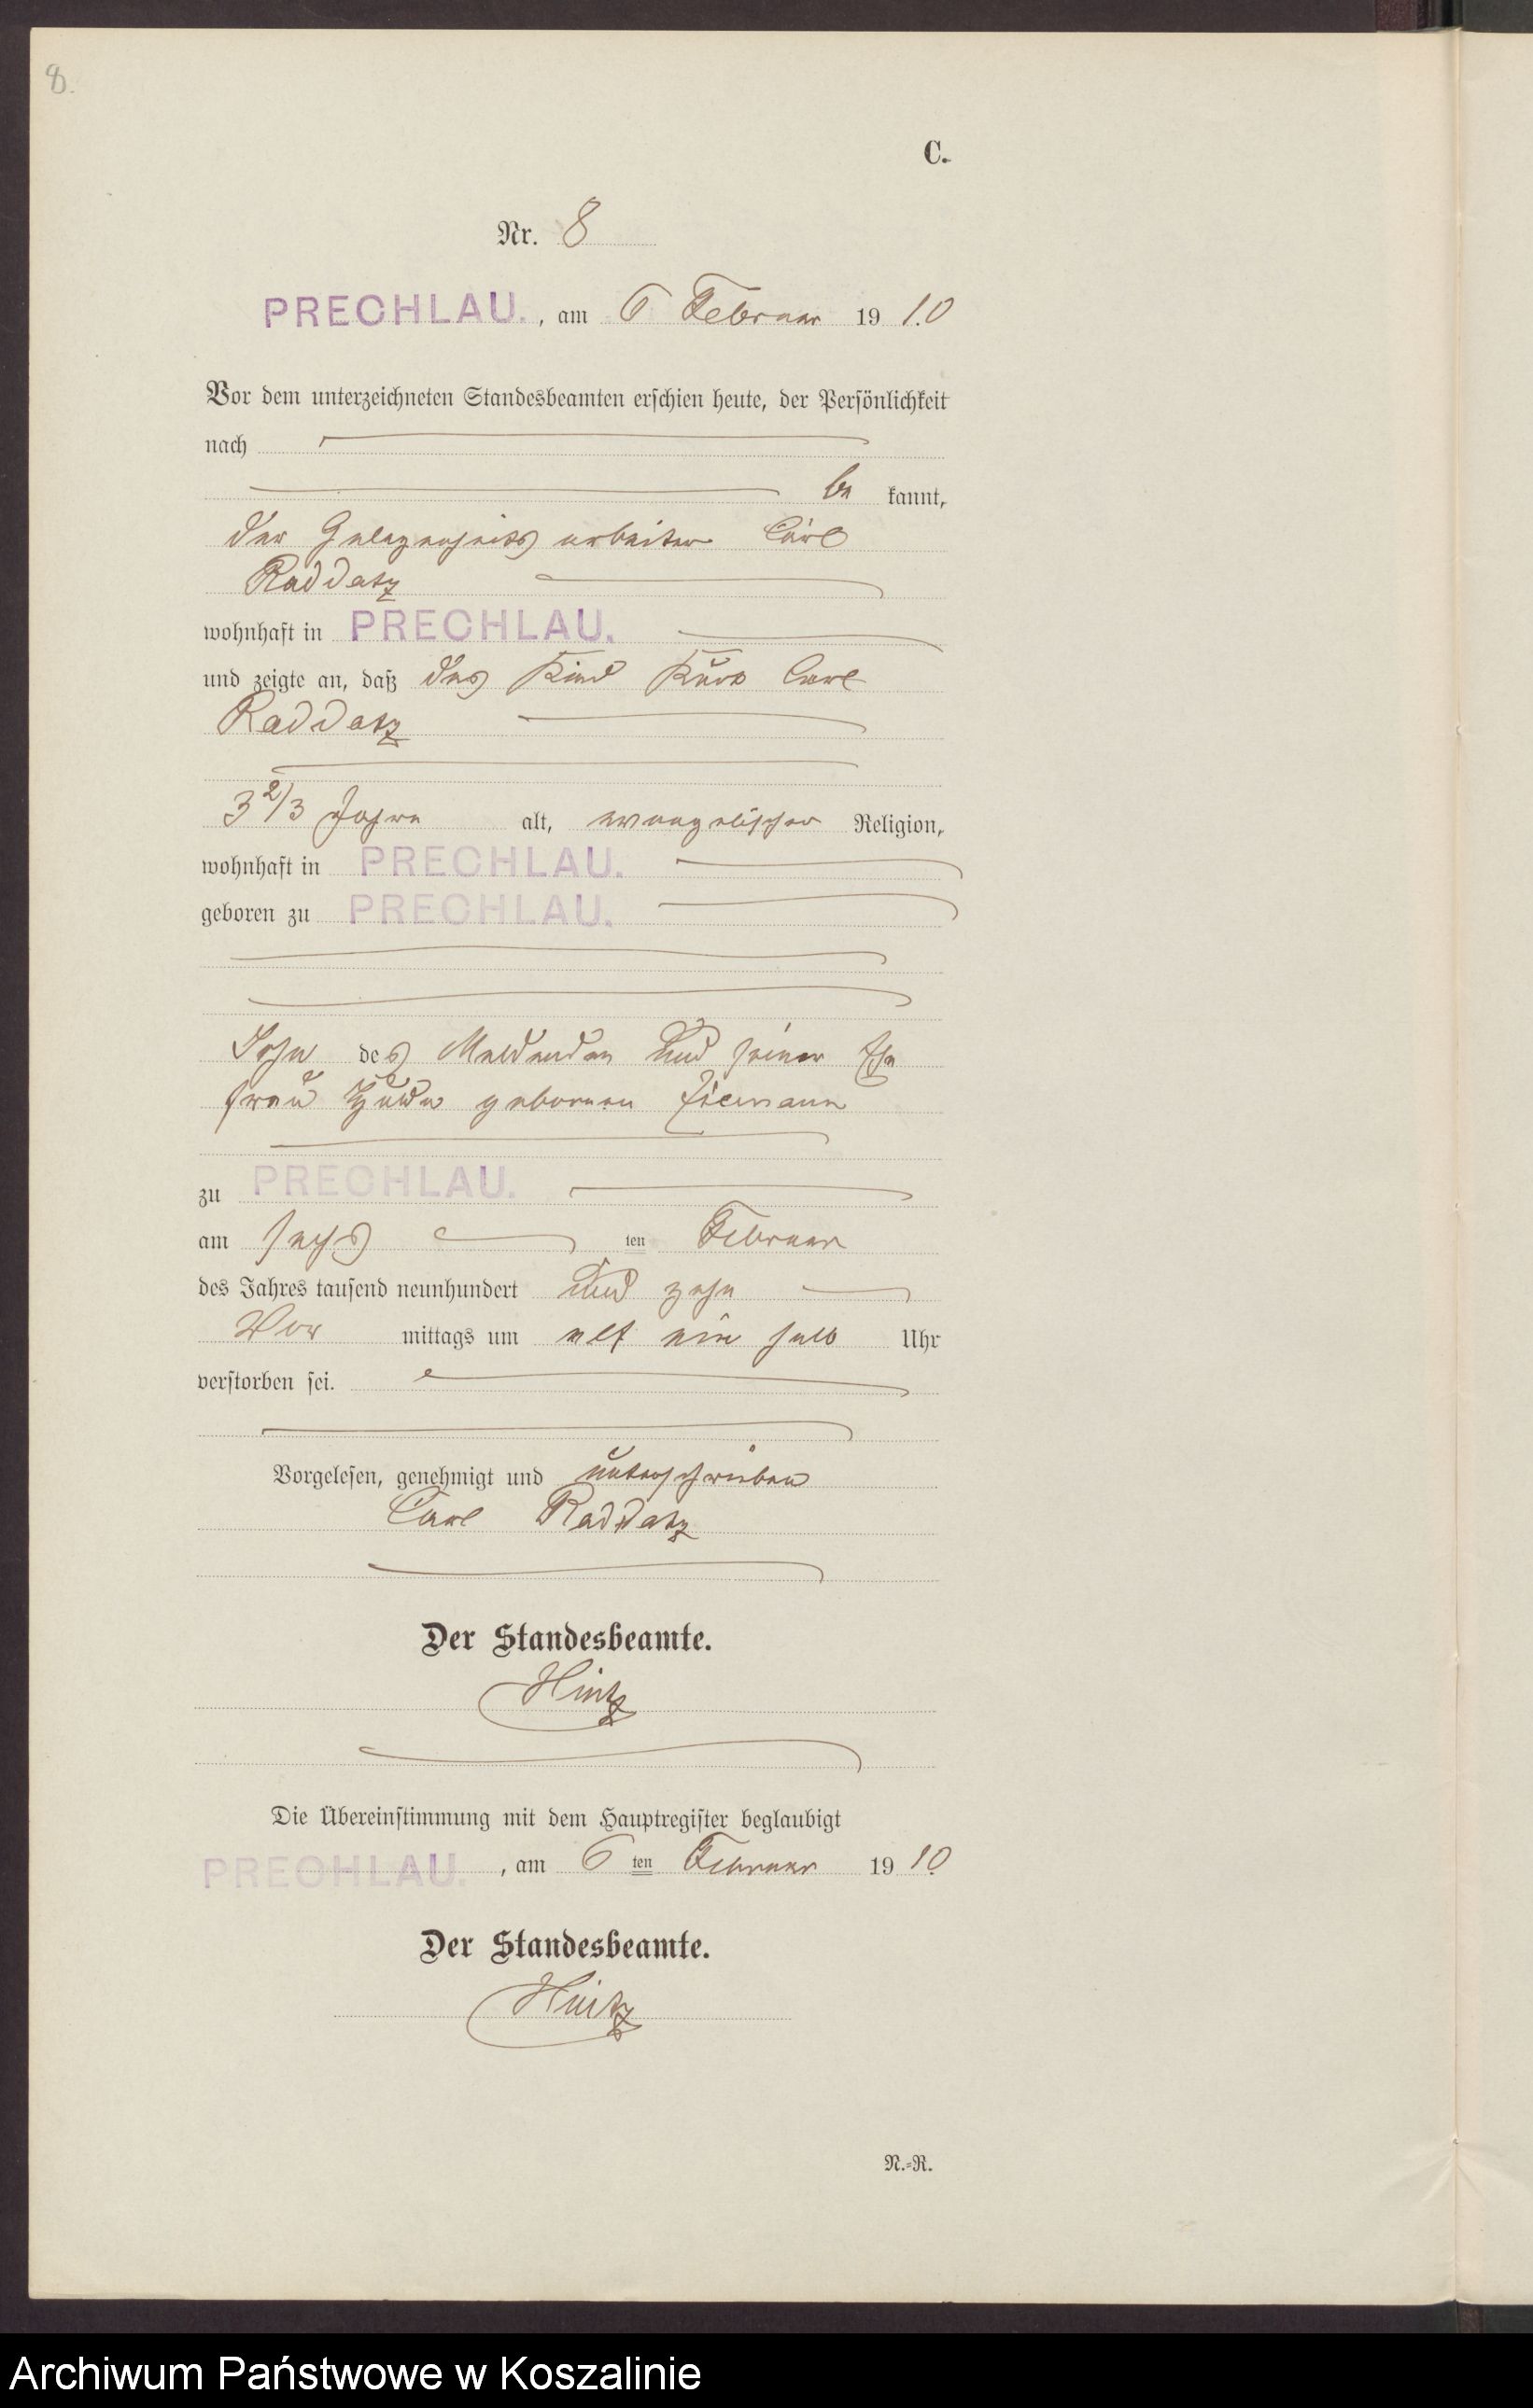 8.
C.
Nr. 8
PRECHLAU., am 6 Februar 1910
Vor dem unterzeichneten Standesbeamten erschien heute, der Persönlichkeit
nach
be kannt,
der Gelegenheitsarbeiter Carl
Raddatz
wohnhaft in PRECHLAU.
und zeigte an, daß das Kind Kurt Carl
Raddatz
3 2/3 Jahre alt, evangelischer Religion,
wohnhaft in PRECHLAU.
geboren zu PRECHLAU.
Sohn des Meldenden und seiner Ehe
frau geborenen Ziemann
zu PRECHLAU.
am sechs ten Februar
des Jahres tausend neunhundert und zehn
Vor mittags um elf ein halb Uhr
verstorben sei.
Vorgelesen, genehmigt und unterschrieben
Carl Raddatz
Der Standesbeamte.
Hintz
Die Übereinstimmung mit dem Hauptregister beglaubigt
PRECHLAU., am 6 ten Februar 1910
Der Standesbeamte.
Hintz
N.-R.
Archiwum Państwowe w Koszalinie